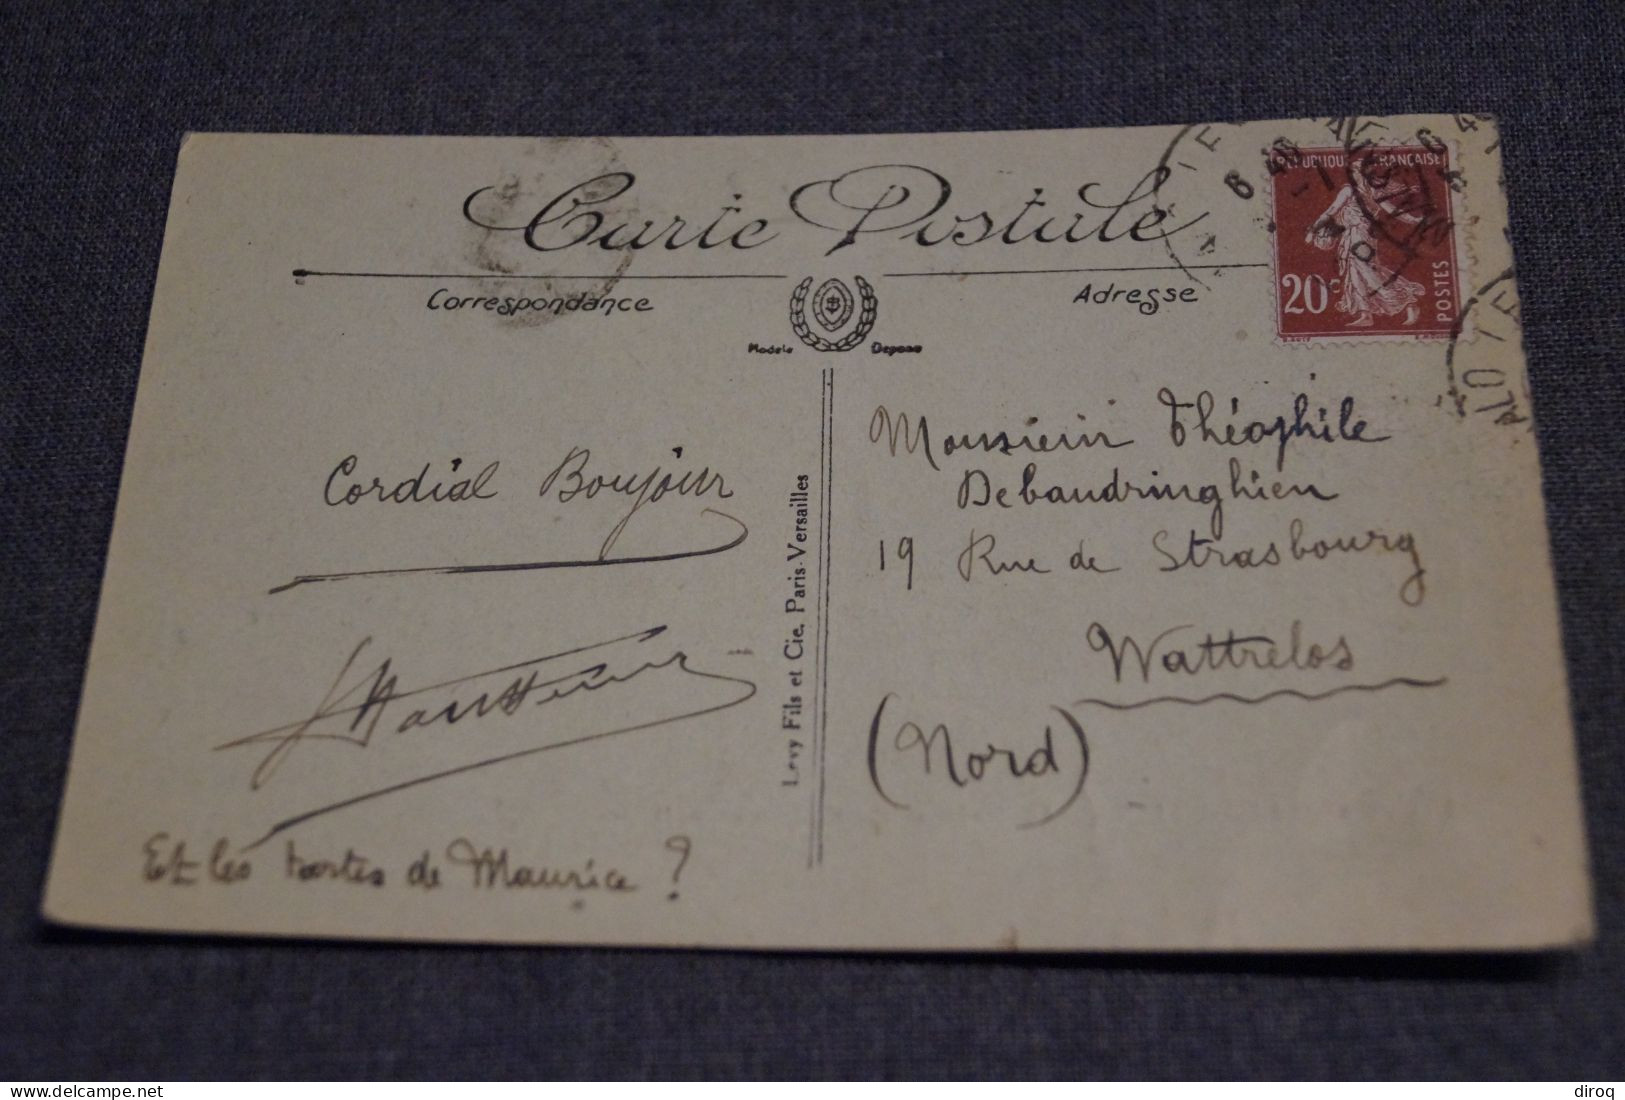 Carte Postale
Correspondance
Adresse
Modèle Déposé
RÉPUBLIQUE FRANÇAISE
20c
POSTES
Cordial Boujour
Et les tartes de Maurice ?
Levy Fils et Cie. Paris-Versailles
Monsieur Théophile
Debaudringhien
19 Rue de Strasbourg
Wattrelos
(Nord)
diroq